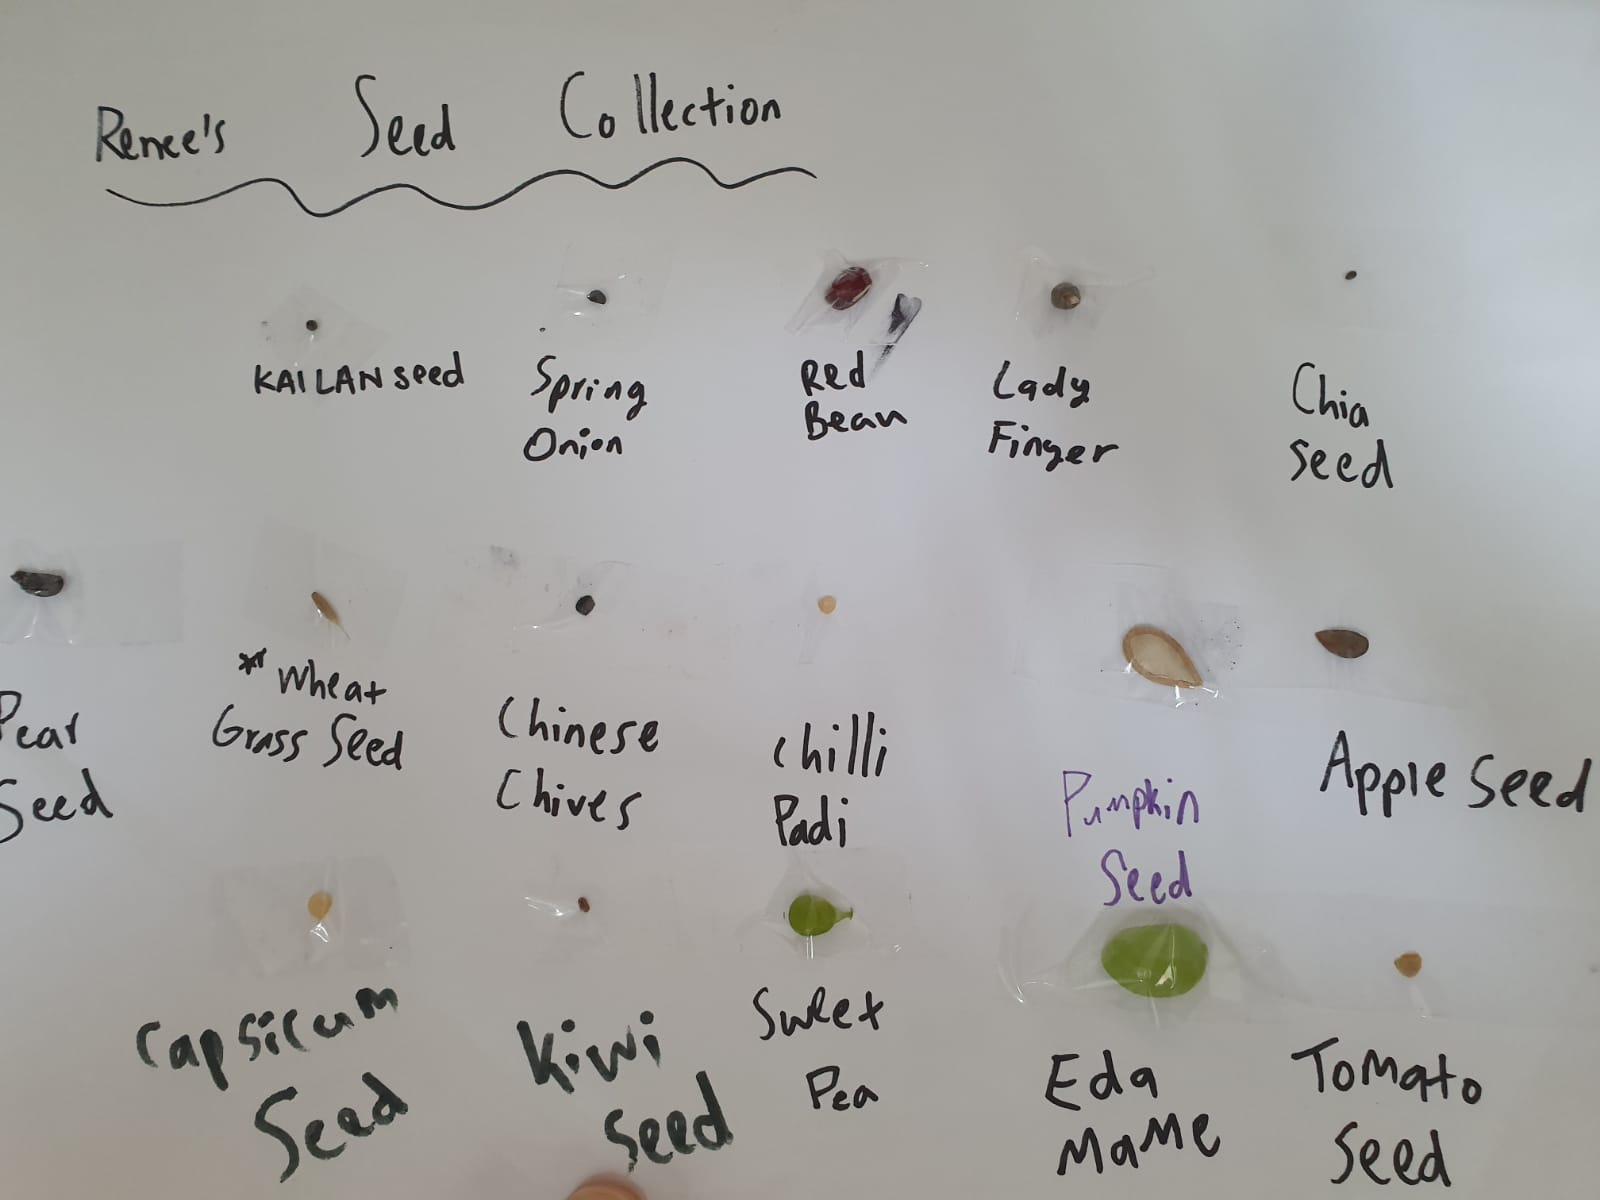 Renee's Seed Collection
KAILAN seed
Spring
Onion
Red
Bean
Lady
Finger
Chia
seed
Pear
Seed
* Wheat
Grass Seed
Chinese
Chives
chilli
Padi
Pumpkin
Seed
Apple Seed
Capsicum
Seed
Kiwi
seed
Sweet
Pea
Eda
MaMe
ToMato
Seed